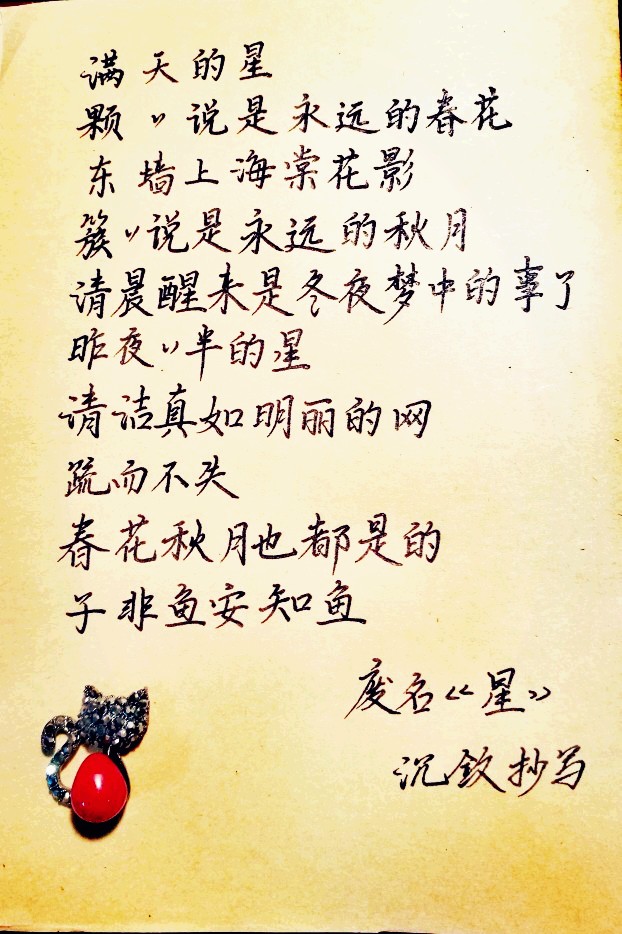 满天的星
颗〃说是永远的春花
东墙上海棠花影
簇〃说是永远的秋月
清晨醒来是冬夜梦中的事了
昨夜〃半的星
清洁真如明丽的网
疏而不失
春花秋月也都是的
子非鱼安知鱼
废名《星》
沉钦抄写